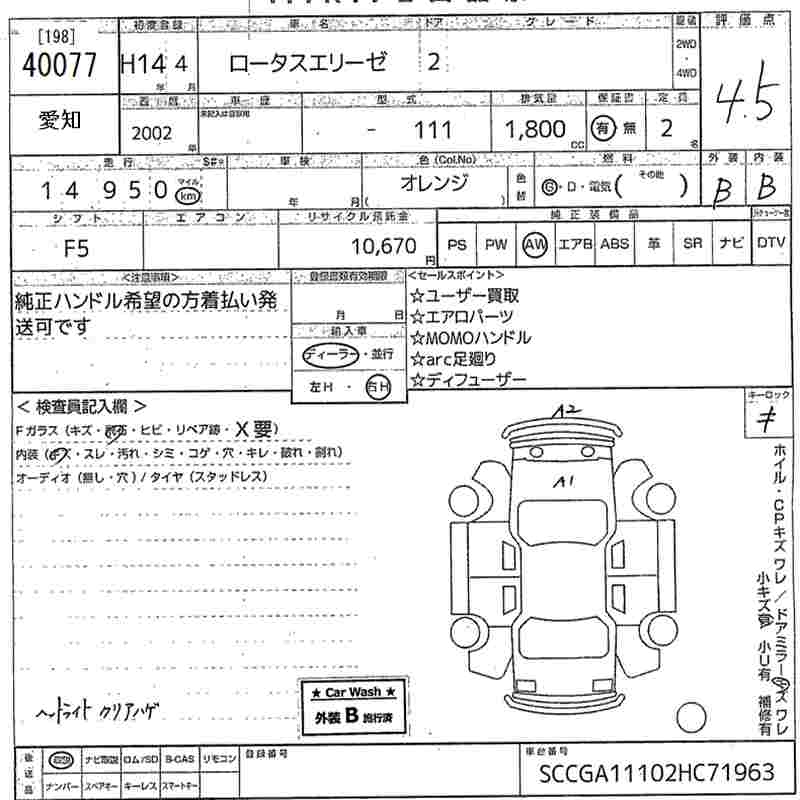 [198]
40077
愛知
初度登録 車名 ドア グレード 駆動 評価点
H14 年 4 月 ロータスエリーゼ 2 2WD・4WD 4.5
西暦 車歴 型式 排気量 保証書 定員
2002 年 未記入は自家用 - 111 1,800 CC 有・無 2 名
走行 S#* 車検 色(Col.No) 燃料 外装 内装
14 950 マイル km 年 月 オレンジ ( ) 色替 G・D・電気( その他 ) B B
シフト エアコン リサイクル預託金 純正装備品
F5 10,670 円 PS PW AW エアB ABS 革 SR ナビ DTV
<注意事項>
純正ハンドル希望の方着払い発
送可です
登録書類有効期限
月 日
輸入車
ディーラー・並行
左H・右H
<セールスポイント>
☆ユーザー買取
☆エアロパーツ
☆MOMOハンドル
☆arc足廻り
☆ディフューザー
キーロック
キ
< 検査員記入欄 >
Fガラス(キズ・飛石・ヒビ・リペア跡・X要)
内装(キズ・スレ・汚れ・シミ・コゲ・穴・キレ・破れ・割れ)
オーディオ(無し・穴)/タイヤ(スタッドレス)
A2
A1
ホイル・CPキズ ワレ / ドアミラーキズ ワレ
小キズ有 小U有 補修有
ヘッドライト クリアハゲ
★ Car Wash ★
外装 B 施行済
後送品 取説 ナビ取説 ロム/SD B-CAS リモコン
ナンバー スペアキー キーレス スマートキー
登録番号
車台番号
SCCGA11102HC71963